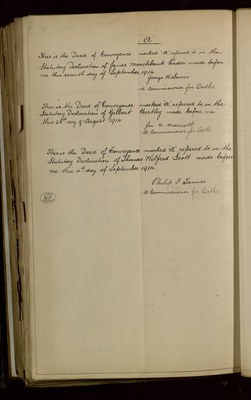 "A"
This is the Deed of Conveyance marked "A" referred to in the
Statutory Declaration of James Marshbank made before
me this seventh day of September 1914.
A Commissioner for Oaths
This is the Deed of Conveyance marked "A" referred to in the
Statutory Declaration of Gilbert Hartley made before me
this 26th day of August 1914
Jno. W. Marriott
A Commissioner for Oaths
This is the Deed of Conveyance marked "A" referred to in the
Statutory Declaration of Thomas Wilfred Scott made before
me this day of September 1914.
Philip F Turner
A Commissioner for Oaths